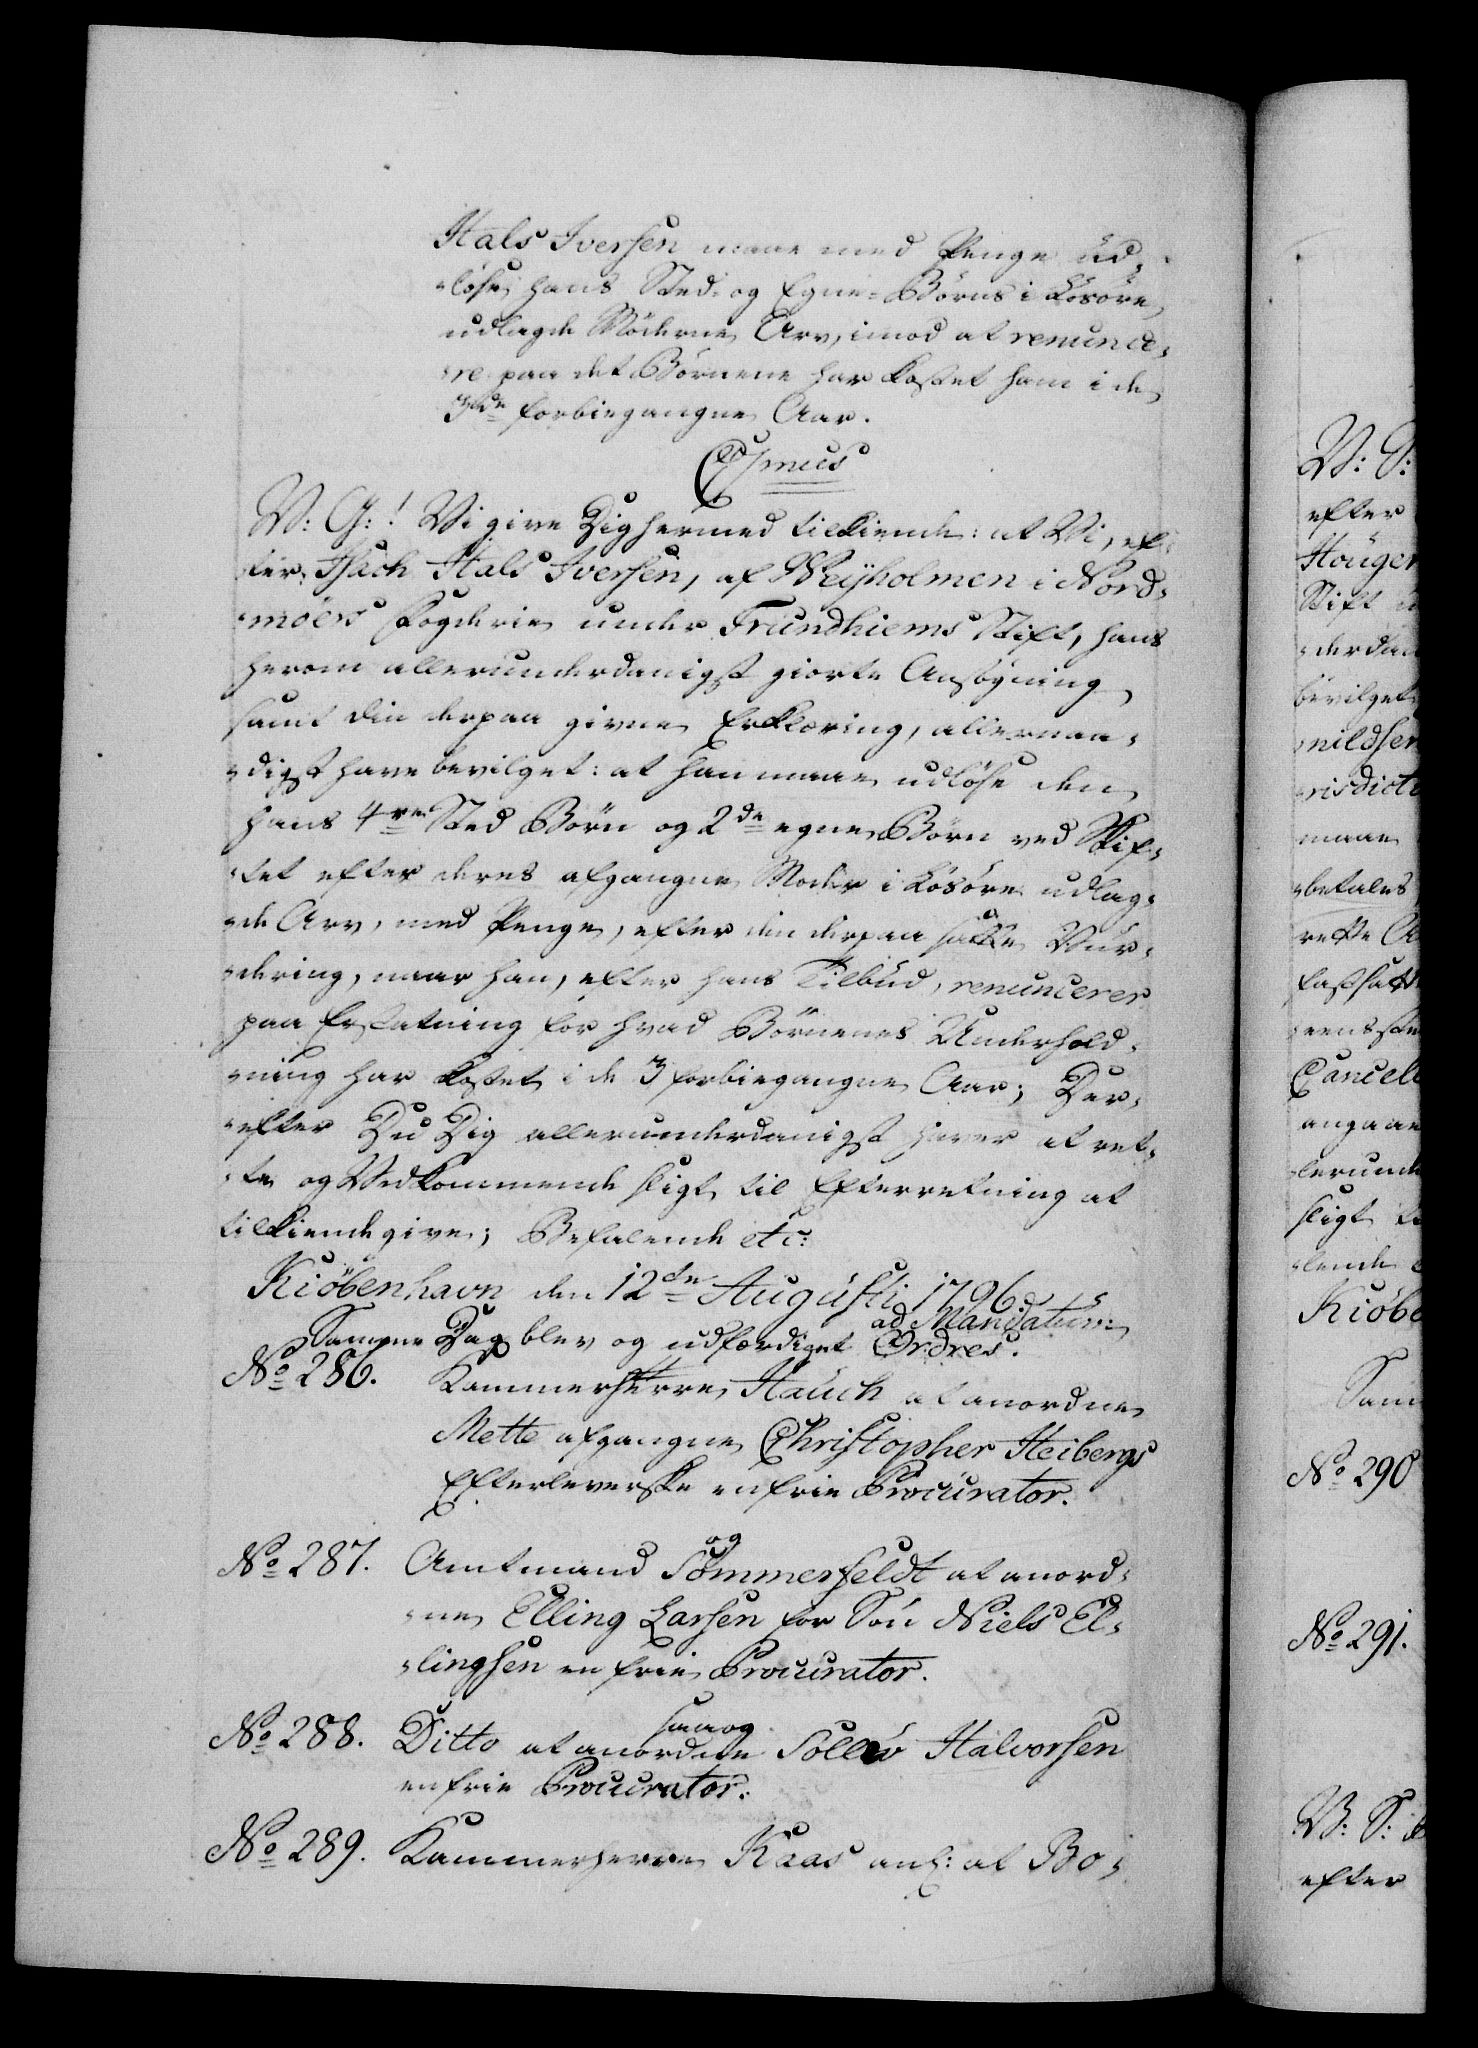 Hals Iversen maae med Penge ud-
-løse hans Sted- og Egne-Børns i Løsøre
udlagde Møderne Arv, imod at renunce-
-re paa det Børnene har kostet ham i de
3de forbiegangne Aar.
C7mus
V: G:! Vi give Dig hermed tilkiende: at Vi, ef-
-ter Isach Hals Iversen, af Weyholmen i Nord-
-möers Fogderie under Trundhiems Stift, hans
herom allerunderdanigst giorte Ansøgning
samt din derpaa givne Erklæring, allernaa-
-digst have bevilget: at han maae udløse den
hans 4re Sted Børn og 2de egne Børn ved Skif-
-tet efter deres afgangne Moder i Løsøre udlag-
-de Arv, med Penge, efter den derpaa satte Vur-
-dering, naar han, efter hans Tilbud, renuncerer
paa Erstatning for hvad Børnenes Underhold-
-ning har kostet i de 3 forbiegangne Aar; Der-
-efter Du Dig allerunderdanigst haver at ret-
-te og Vedkommende sligt til Efterretning at
tilkiendegive; Befalende etc:
Kiöbenhavn den 12te Augusti 1796.
Samme Dag blev og udfærdiget ad Mandatum:
Ordres.
No 286. Kammerherre Hauch at anordne
Mette afgangne Christopher Heibergs
Efterleverske en frie Procurator.
No 287. Amtmand Sommerfeldt og at anord-
-ne Elling Larsen for Søn Niels El-
-lingsen en frie Procurator.
No 288. Ditto at anordne saa og Sollev Halvorsen
en frie Procurator.
No 289. Kammerherre Kaas anl: at Bo-
V: S:
efter
Houger
Stift
-derdan
bevilget
-mildsen
-risdicti
maae
-betales
rette
fastsatt
Cancell
angaae
-lerunde
sligt
-lende
Kiöbe
Sam
No 290
No 291.
V: S:
efter